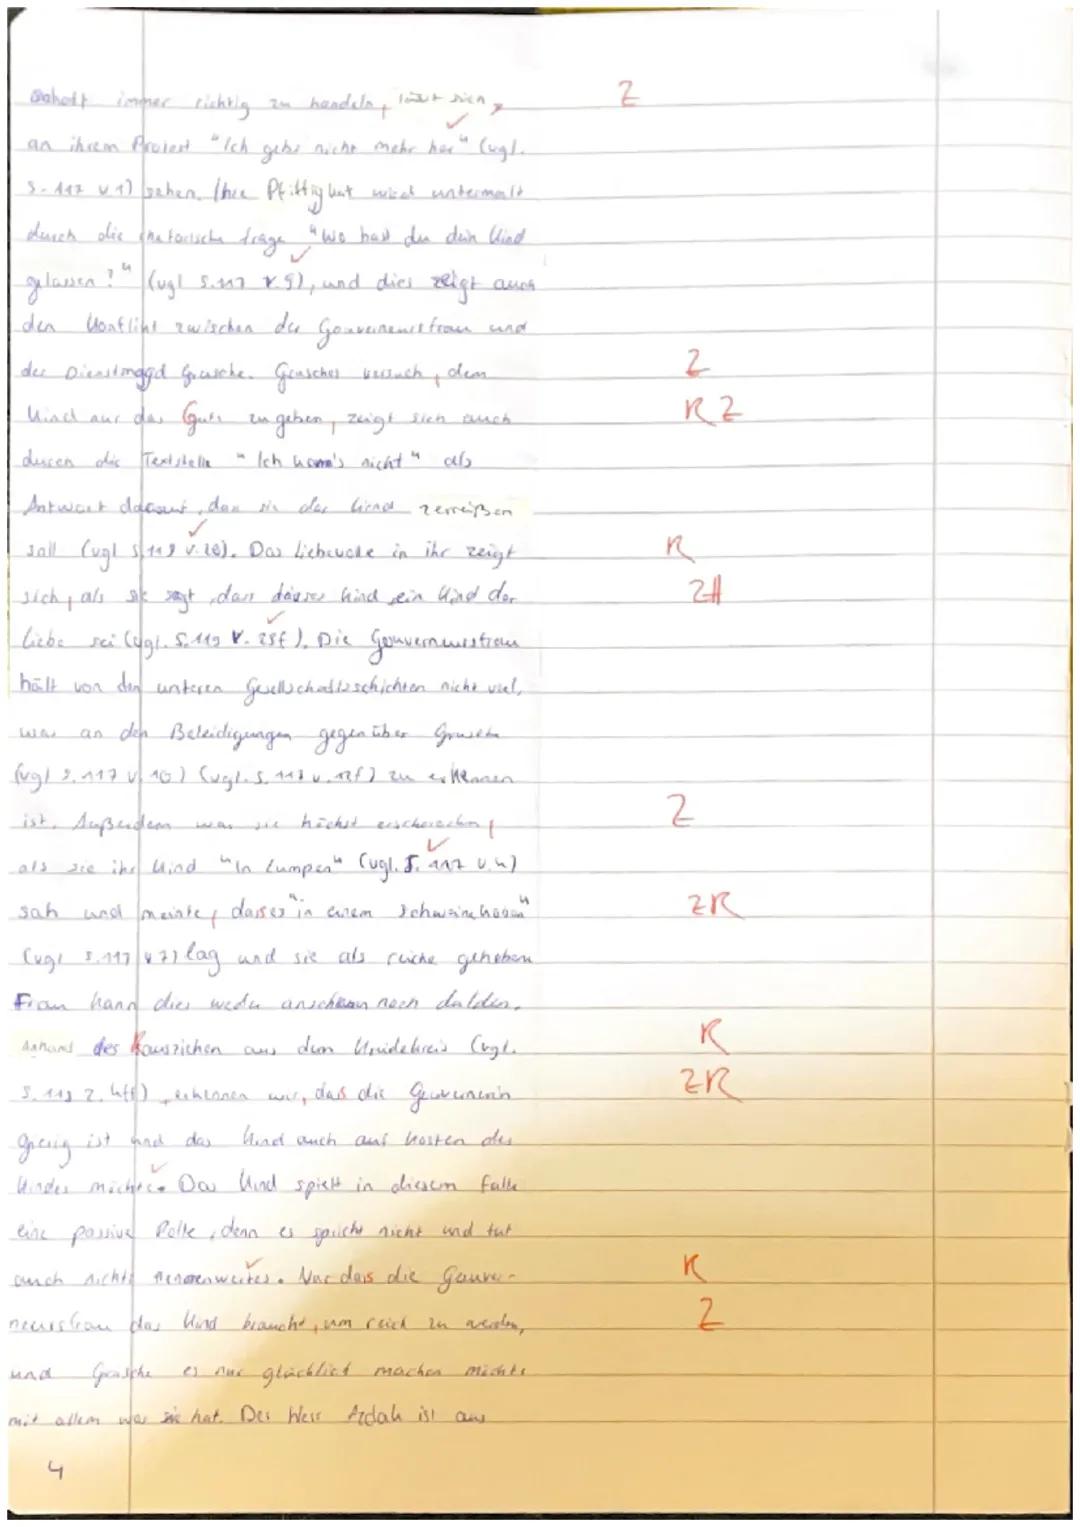 immer richtig zu handeln, lässt sich, Z
an ihrem Protest "Ich gebs nicht mehr her" (vgl.
S. 117 V 1) sehen. Ihre Pfiffigkeit wird untermalt
durch die rhetorische Frage "Wo hast du dein Kind
gelassen?" (vgl S. 117 V. 9), und dies zeigt auch
den Konflikt zwischen der Gouverneursfrau und
der Dienstmagd Grusche. Grusches versuch, dem Z
Kind nur das Gute zu geben, zeigt sich auch R Z
durch die Textstelle "Ich kann's nicht" als
Antwort darauf, dass sie das Kind zerreißen
soll (vgl S. 119 V. 20). Das Liebevolle in ihr zeigt R
sich, als sie sagt, dass dieses Kind ein Kind der
Liebe sei (vgl. S. 119 V. 25f). Die Gouverneursfrau
hält von den unteren Gesellschaftsschichten nicht viel,
was an den Beleidigungen gegenüber Grusche
(vgl S. 117 V. 10) (vgl. S. V. 12f) zu erkennen
ist. Außerdem war sie höchst erschrocken, Z
als sie ihr Kind "In Lumpen" (vgl. S. 117 V. 4)
sah und meinte, dass es "in einem Schweinekoben" ZR
(vgl S. 117 V 7) lag und sie als reiche gehoben
Frau kann dies weder anschauen noch dulden.
Anhand des Rausziehen aus dem Kreidekreis (vgl. R
S. 119 Z. 4ff), erkennen wir, dass die ZR
gierig ist und das Kind auch auf Kosten des
Kindes möchte. Das Kind spielt in diesem Falle
eine passive Rolle, denn es spricht nicht und tut
auch nichts nennenwertes. Nur dass die Gouver- R
neursfrau das Kind braucht, um reich zu werden, Z
und Grusche es nur glücklich machen möchte
mit allem was sie hat. Der Herr Azdak ist aus
4